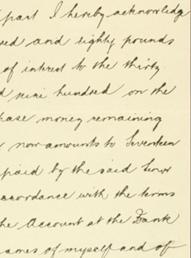 part I hereby acknowledg
and eighty pounds
of interest to the thirty
nine hundred on the
hase money remaining
now amounts to Seventeen
paid by the said
accordance with the terms
he Account at the Bank
ames of myself and of